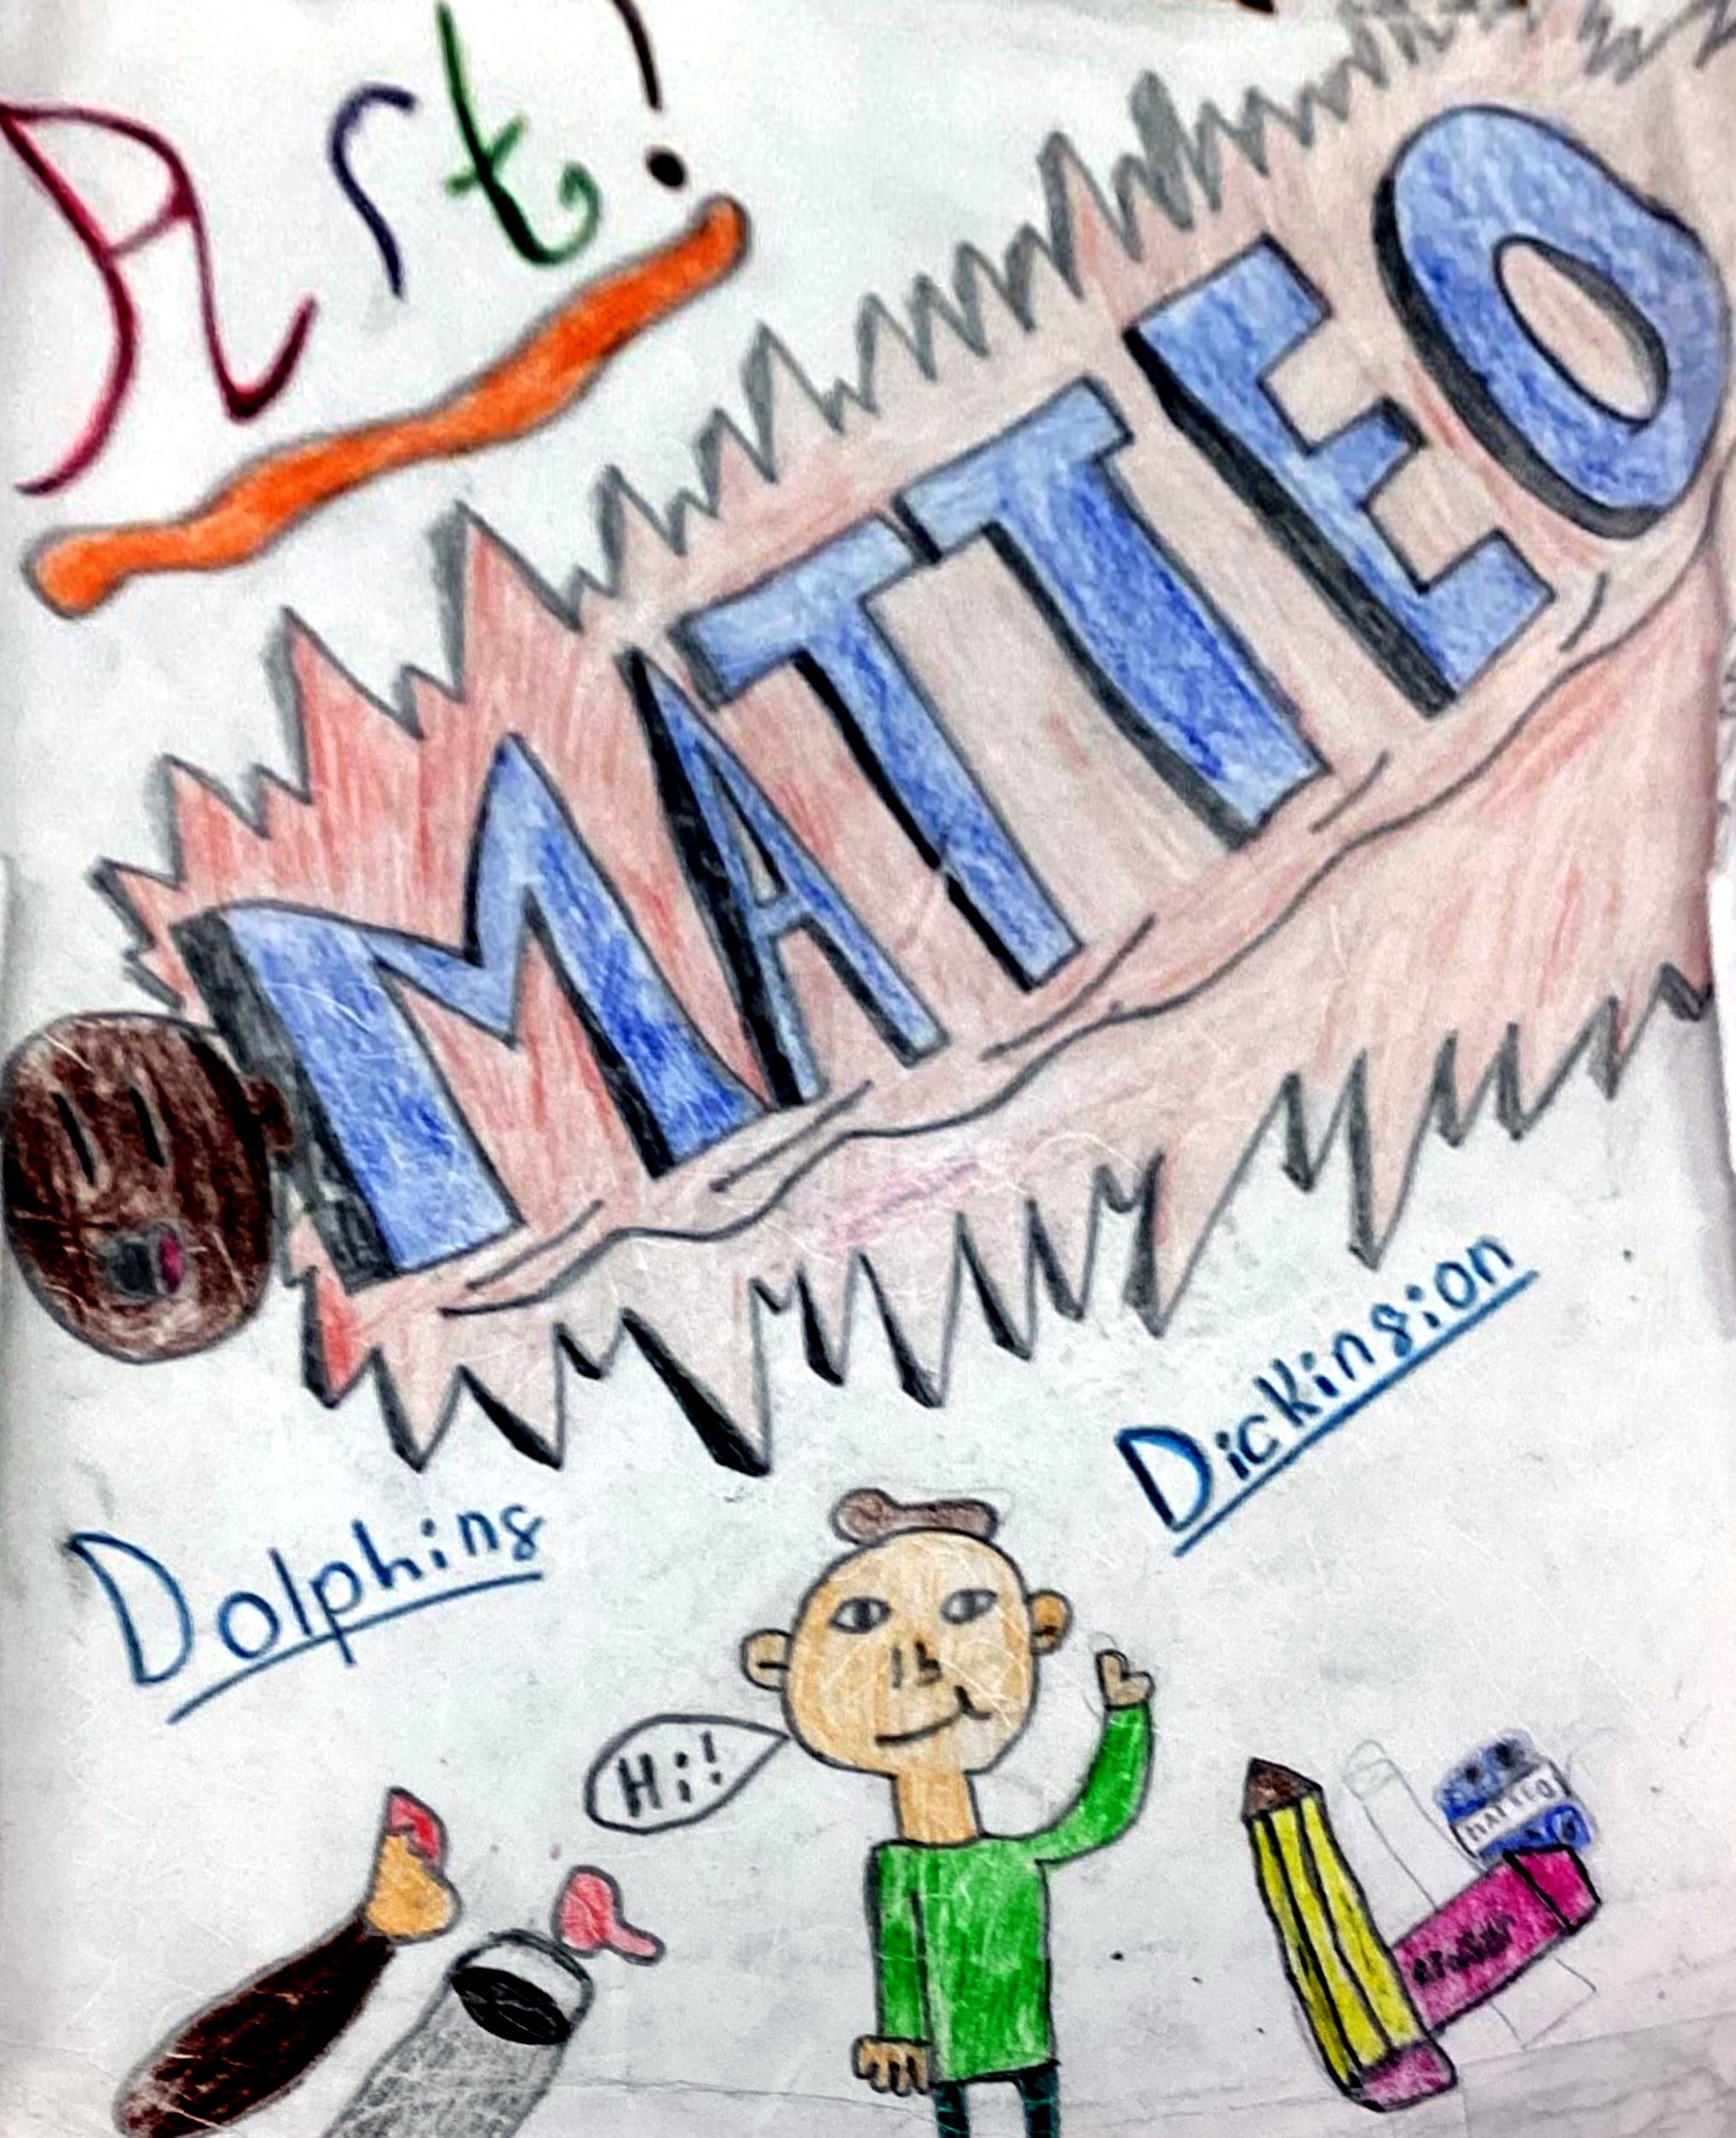 Art!
MATTEO
Dickinsion
Dolphins
Hi!
MATTEO
eraser